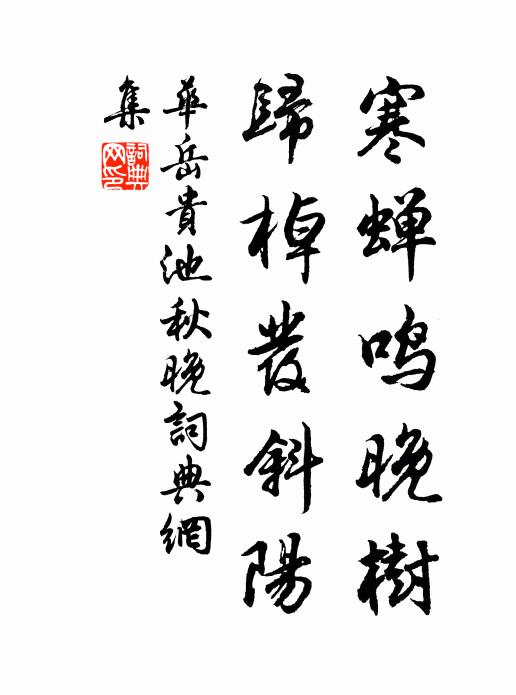 寒蝉鳴晚樹
歸棹發斜陽
華岳貴池秋晚詞典網
集
詞典
网印